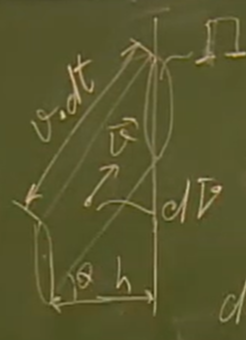 П
v·dt
v⃗
dV
θ h
d